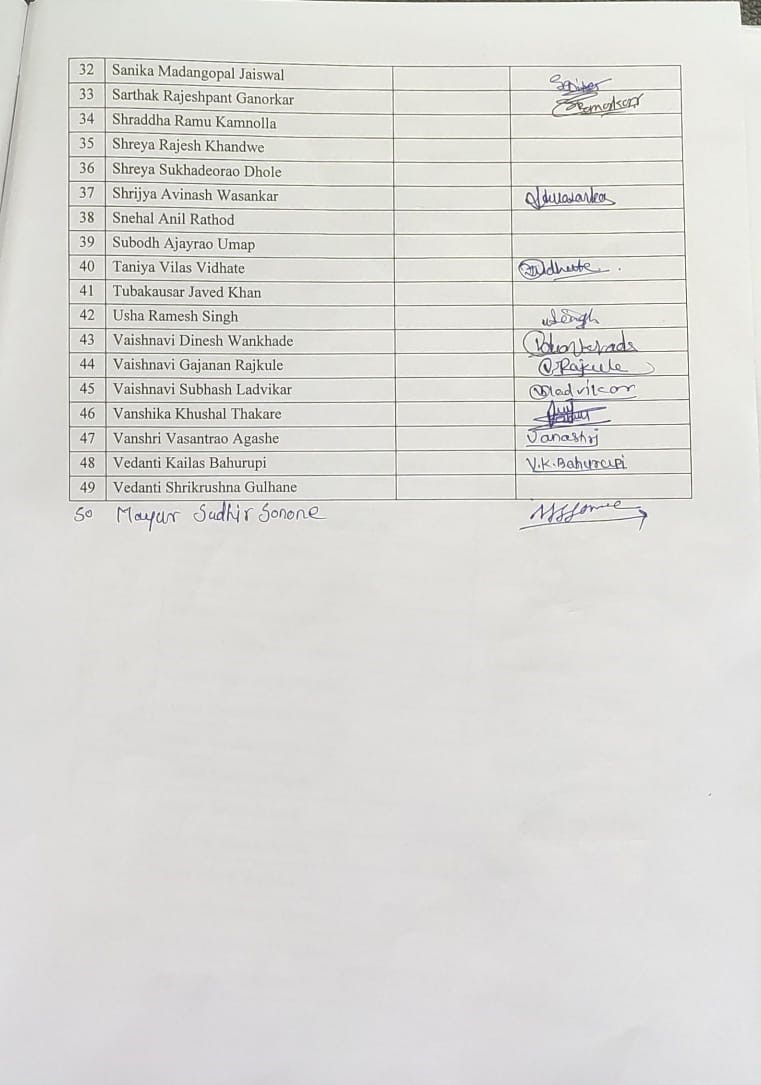 32 Sanika Madangopal Jaiswal
33 Sarthak Rajeshpant Ganorkar
34 Shraddha Ramu Kamnolla
35 Shreya Rajesh Khandwe
36 Shreya Sukhadeorao Dhole
37 Shrijya Avinash Wasankar
38 Snehal Anil Rathod
39 Subodh Ajayrao Umap
40 Taniya Vilas Vidhate
41 Tubakausar Javed Khan
42 Usha Ramesh Singh
43 Vaishnavi Dinesh Wankhade
44 Vaishnavi Gajanan Rajkule Rajkule
45 Vaishnavi Subhash Ladvikar
46 Vanshika Khushal Thakare
47 Vanshri Vasantrao Agashe Vanashri
48 Vedanti Kailas Bahurupi V.K.Bahurupi
49 Vedanti Shrikrushna Gulhane
50 Mayur Sudhir Sonone